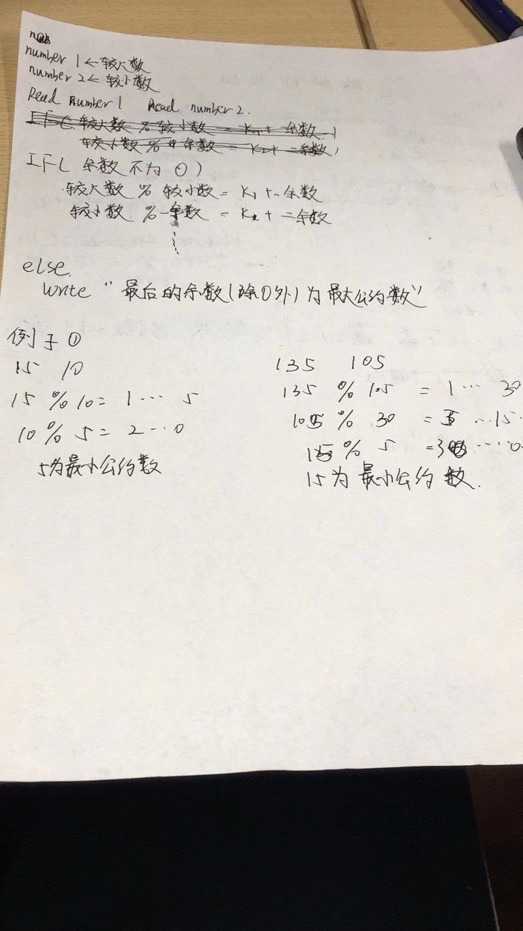 number 1 ← 较大数
number 2 ← 较小数
Read number 1 Read number 2.
IF( 较大数 % 较小数 = K1 + 一余数
较小数 % 余数 = K2 + 二余数
IF( 余数不为 0)
较大数 % 较小数 = K1 + 一余数
较小数 % 一余数 = K2 + 二余数
else
write “最后的余数(除0外)为最大公约数”
例子①
15 10
15 % 10 = 1 … 5
10 % 5 = 2 … 0
5为最小公约数
135 105
135 % 105 = 1 … 30
105 % 30 = 3 … 15
15 % 5 = 3 … 0
15为最小公约数.